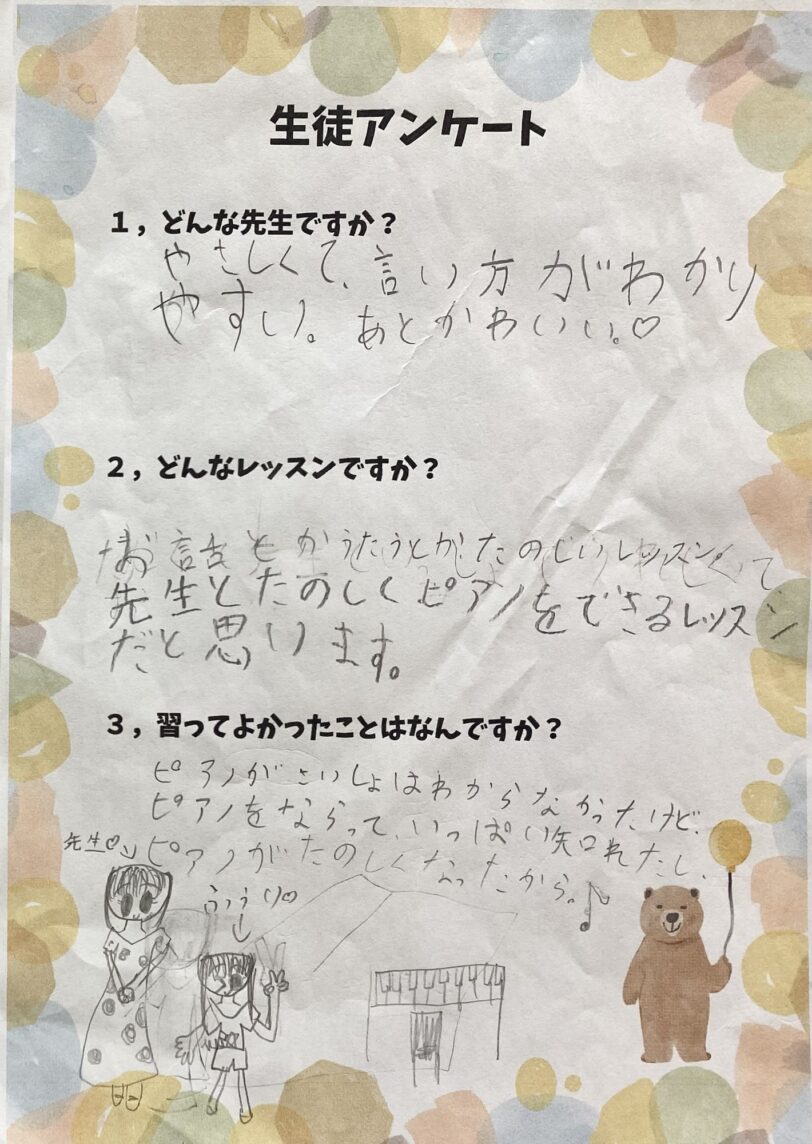 生徒アンケート
１，どんな先生ですか？
やさしくて、言い方がわかり
やすい。あとかわいい。♡
２，どんなレッスンですか？
お話とかうたうとか、たのしいレッスン。
先生とたのしくピアノをできるレッスン
だと思います。
３，習ってよかったことはなんですか？
ピアノがさいしょはわからなかったけど、
ピアノをならって、いっぱい知れたし、
ピアノがたのしくなったから。♪
先生♡